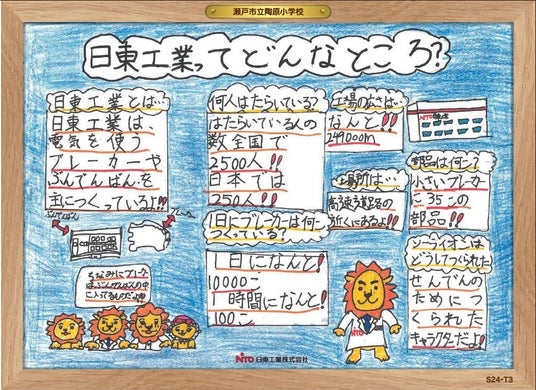 瀬戸市立陶原小学校
日東工業ってどんなところ?
日東工業とは…
日東工業は、
電気を使う
ブレーカーや
ぶんでんばんを
主につくっているよ!!
ぶんでんばん
ちなみにブレーカー
はぶんでんばんの中
に入ってるのだよ!!
何人はたらいている?
はたらいている人の
数全国で
2500人!!
日本では
250人!!
1日にブレーカーは何こ
つくっている?
1日になんと!
10000こ
1時間になんと!
100こ
工場の広さは…
なんと!!
249000m
工場所は…
高速道路の
近くにあるよ!!
NITO
部品は何こ?
小さいブレーカー
に35この
部品!!
シーライオンは
どうしてつくられた
せんでんの
ためにつ
くられた
キャラクターだよ!
NITO
NITO 日東工業株式会社
S24-T3